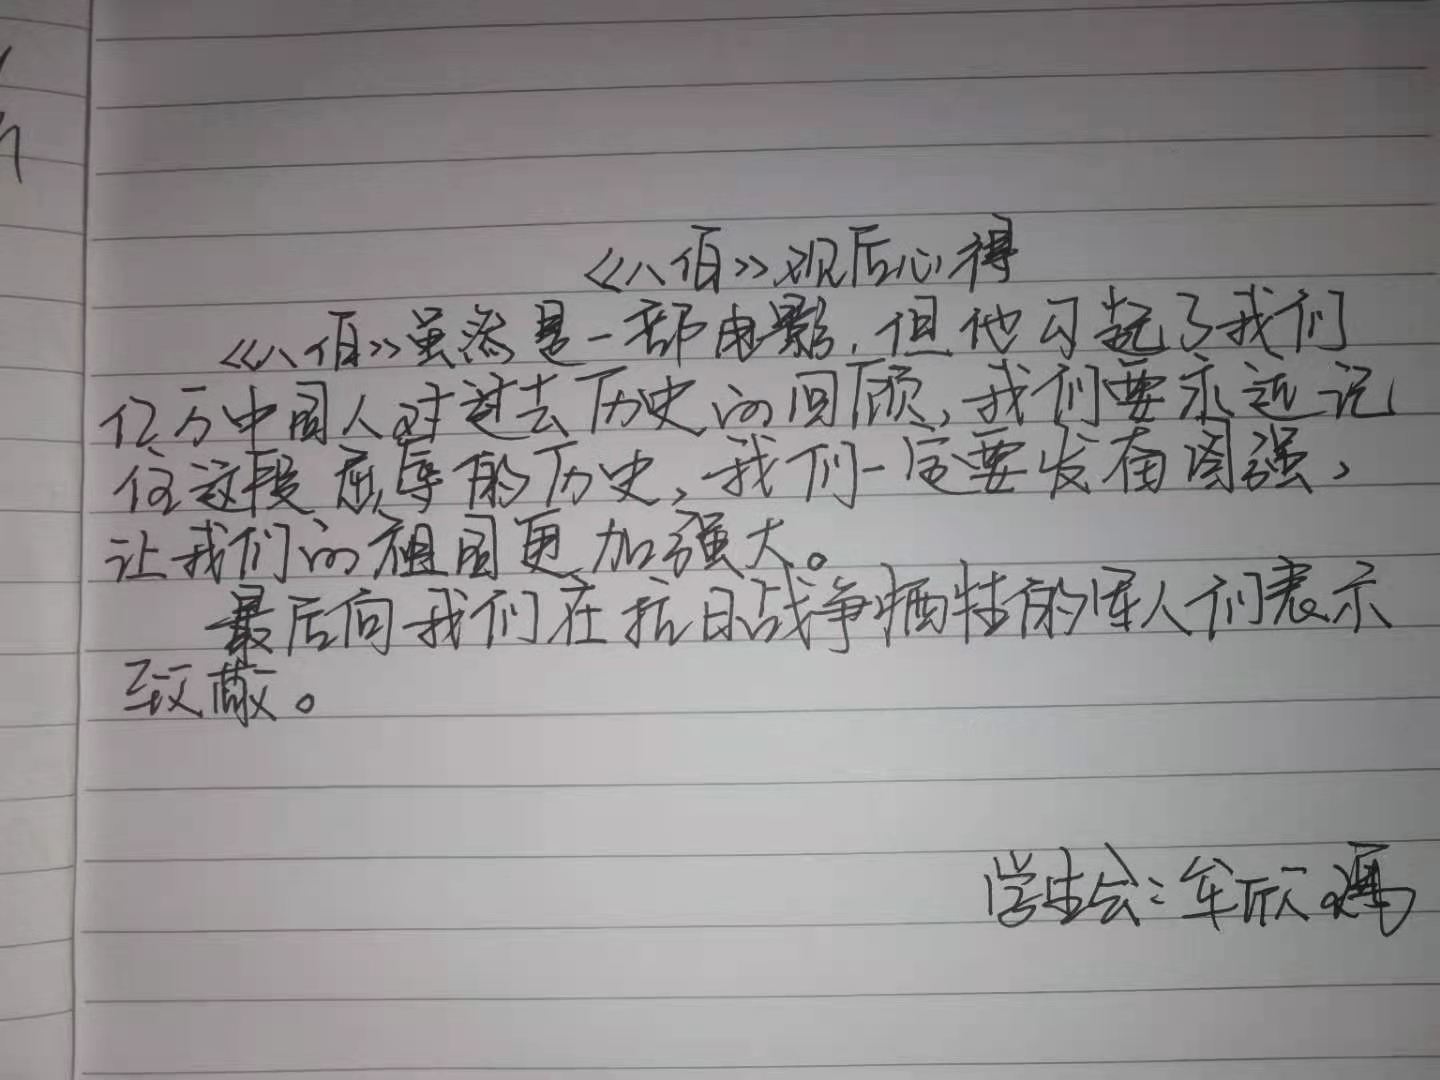 《八佰》观后心得
《八佰》虽然是一部电影，但他勾起了我们
亿万中国人对过去历史的回顾，我们要永远记
住这段屈辱的历史，我们一定要发奋图强，
让我们的祖国更加强大。
最后向我们在抗日战争牺牲的军人们表示
致敬。
学生会：车欣